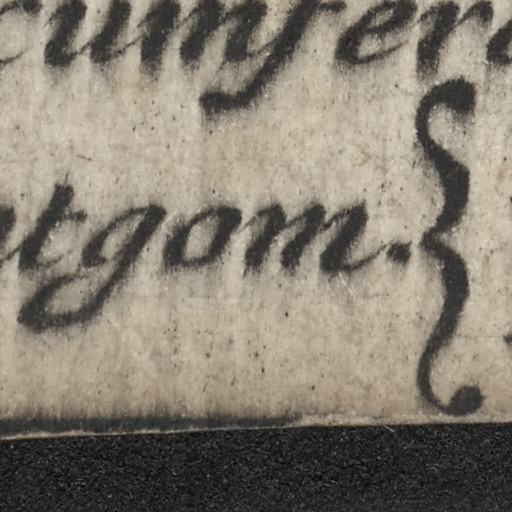 cumfer
tgom. {